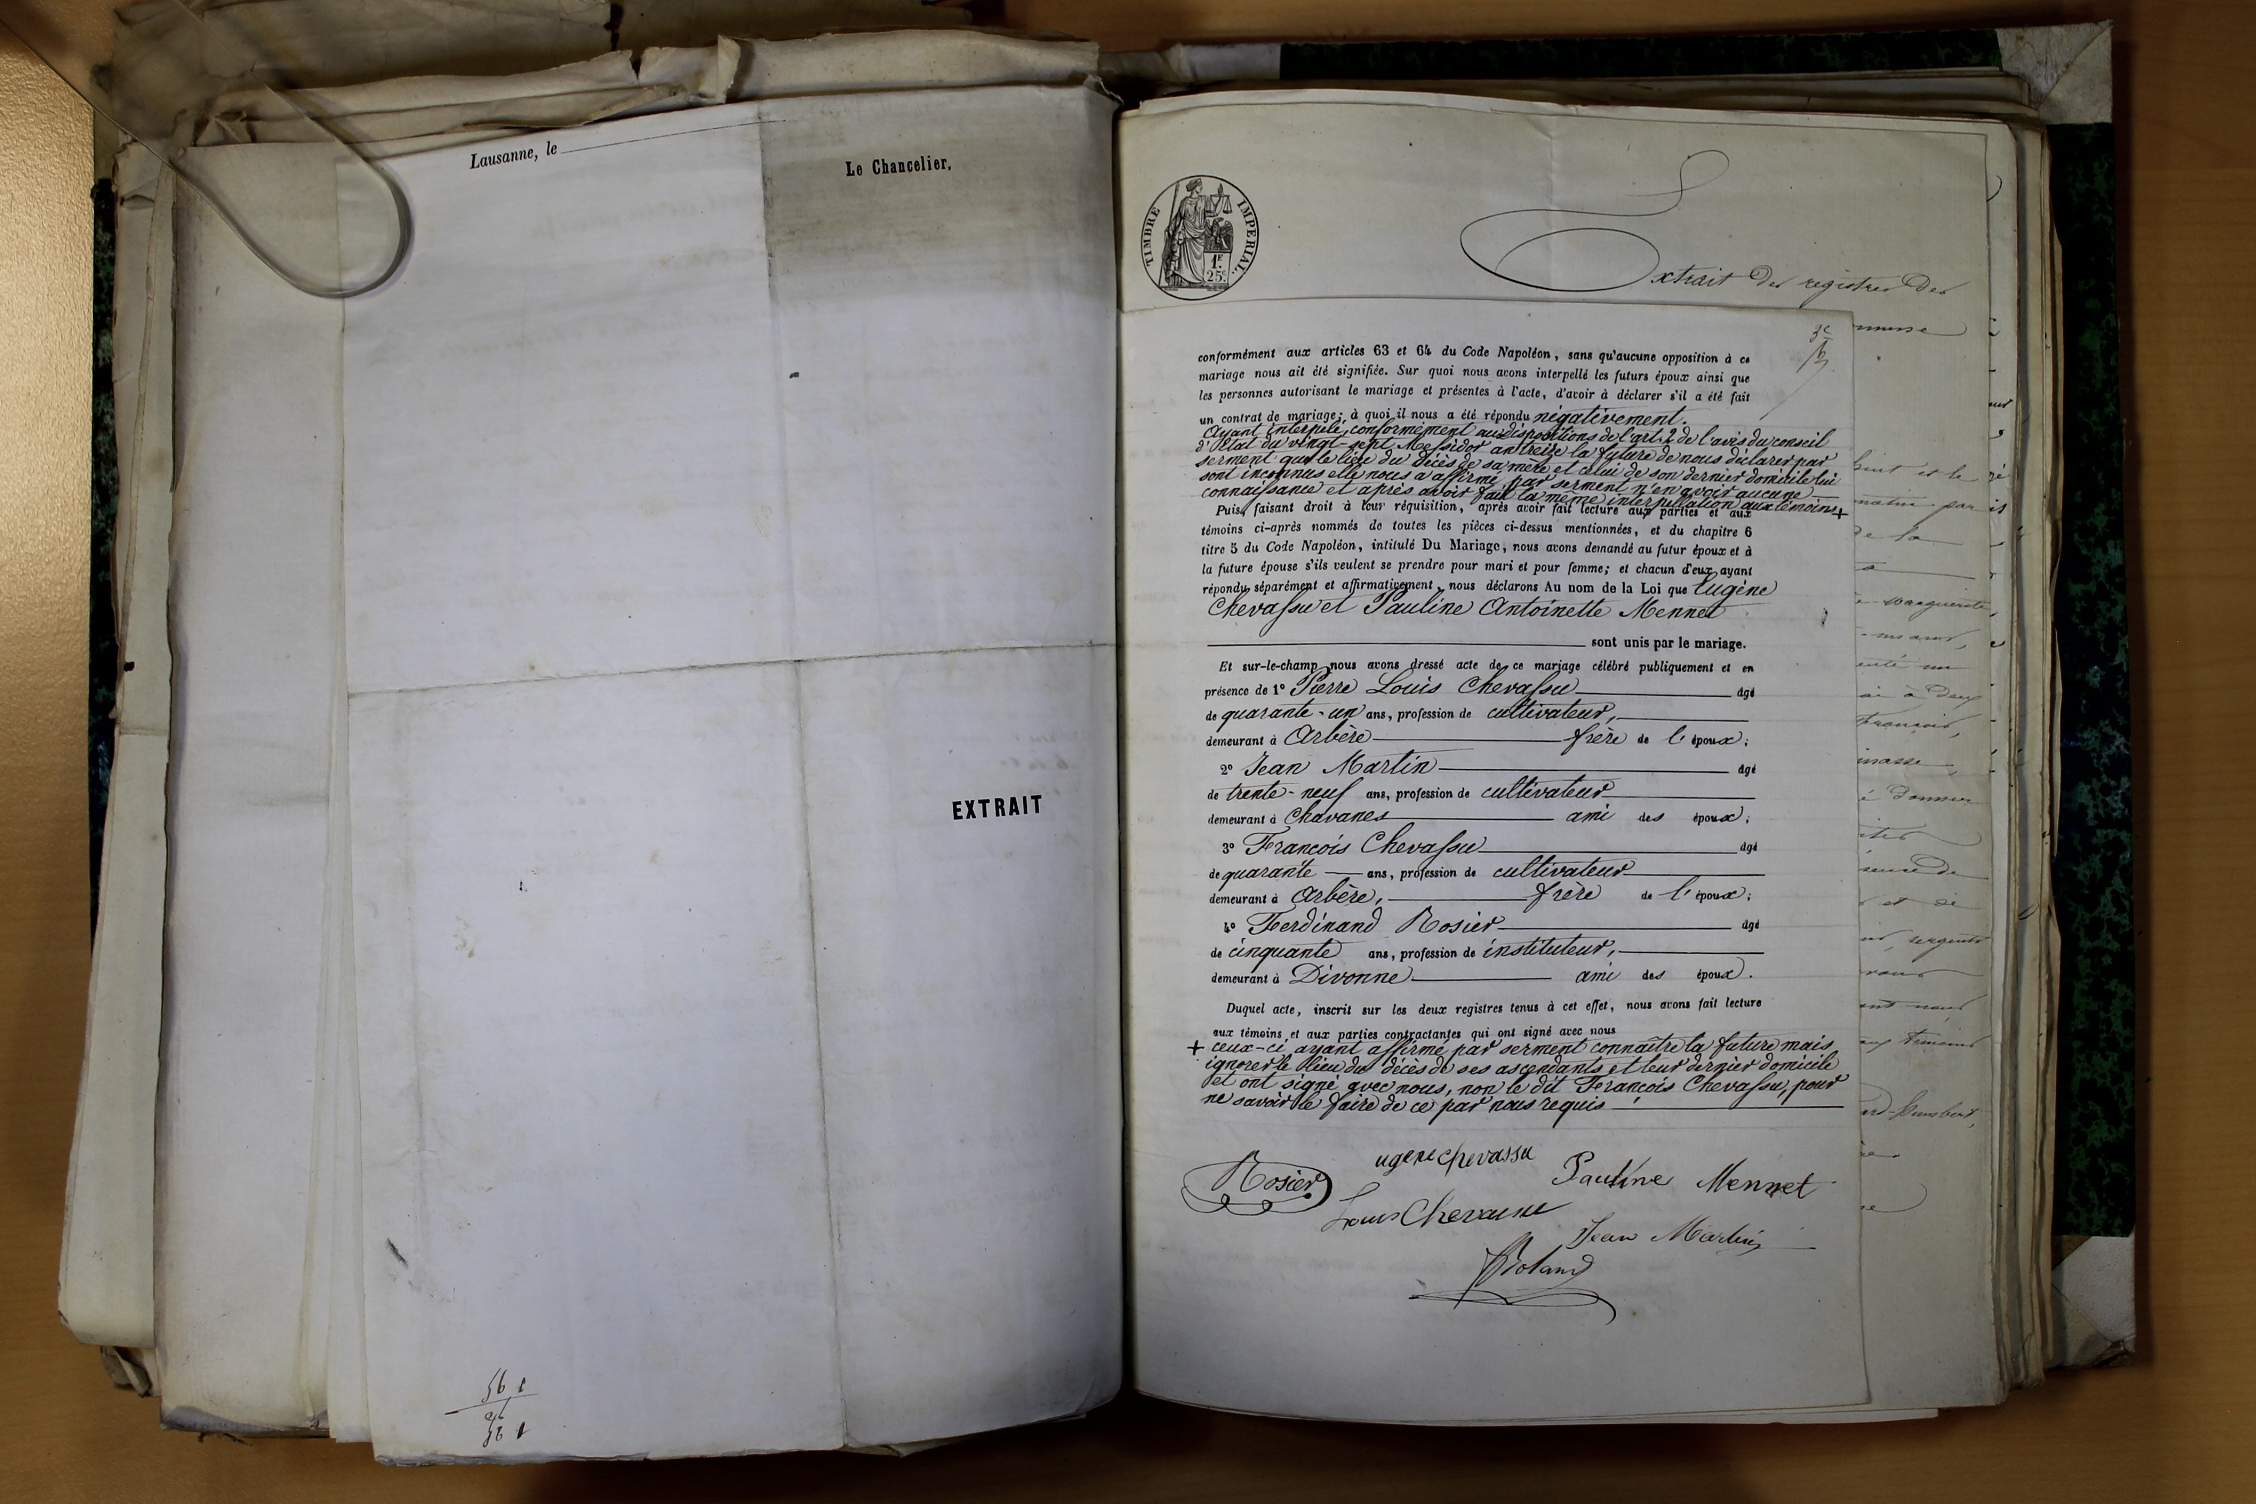 Lausanne, le
Le Chancelier,
EXTRAIT
TIMBRE IMPERIAL.
1F
25c
Extrait des registres des
conformément aux articles 63 et 64 du Code Napoléon, sans qu'aucune opposition à ce
mariage nous ait été signifiée. Sur quoi nous avons interpellé les futurs époux ainsi que
les personnes autorisant le mariage et présentes à l'acte, d'avoir à déclarer s'il a été fait
un contrat de mariage; à quoi il nous a été répondu négativement.
Ayant interpelé, conformément aux dispositions de l'art. 2 de l'avis du conseil
d'Etat du vingt-sept Messidor an treize la future de nous déclarer par
serment que le lieu du décès de sa mère et celui de son dernier domicile lui
sont inconnus elle nous a affirmé par serment n'en avoir aucune
connaissance et après avoir fait la même interpellation aux témoins +
Puis, faisant droit à leur réquisition, après avoir fait lecture aux parties et aux
témoins ci-après nommés de toutes les pièces ci-dessus mentionnées, et du chapitre 6
titre 5 du Code Napoléon, intitulé Du Mariage, nous avons demandé au futur époux et à
la future épouse s'ils veulent se prendre pour mari et pour femme; et chacun d'eux ayant
répondu séparément et affirmativement, nous déclarons Au nom de la Loi que Eugène
Chevassu et Pauline Antoinette Mennet
sont unis par le mariage.
Et sur-le-champ nous avons dressé acte de ce mariage célébré publiquement et en
présence de 1° Pierre Louis Chevassu âgé
de quarante-un ans, profession de cultivateur,
demeurant à Arbère frère de l'époux;
2° Jean Martin âgé
de trente-neuf ans, profession de cultivateur
demeurant à Chavanes ami des époux;
3° François Chevassu âgé
de quarante ans, profession de cultivateur
demeurant à Arbère, frère de l'époux;
4° Ferdinand Rosier âgé
de cinquante ans, profession de instituteur,
demeurant à Divonne ami des époux.
Duquel acte, inscrit sur les deux registres tenus à cet effet, nous avons fait lecture
aux témoins et aux parties contractantes qui ont signé avec nous
+ ceux-ci ayant affirmé par serment connaître la future mais
ignorer le lieu du décès de ses ascendants et leur dernier domicile
et ont signé avec nous, non le dit François Chevassu, pour
ne savoir le faire de ce par nous requis
ugene chevassu
Rosier
Pauline Mennet
Louis Chevassu
Jean Martin
Roland